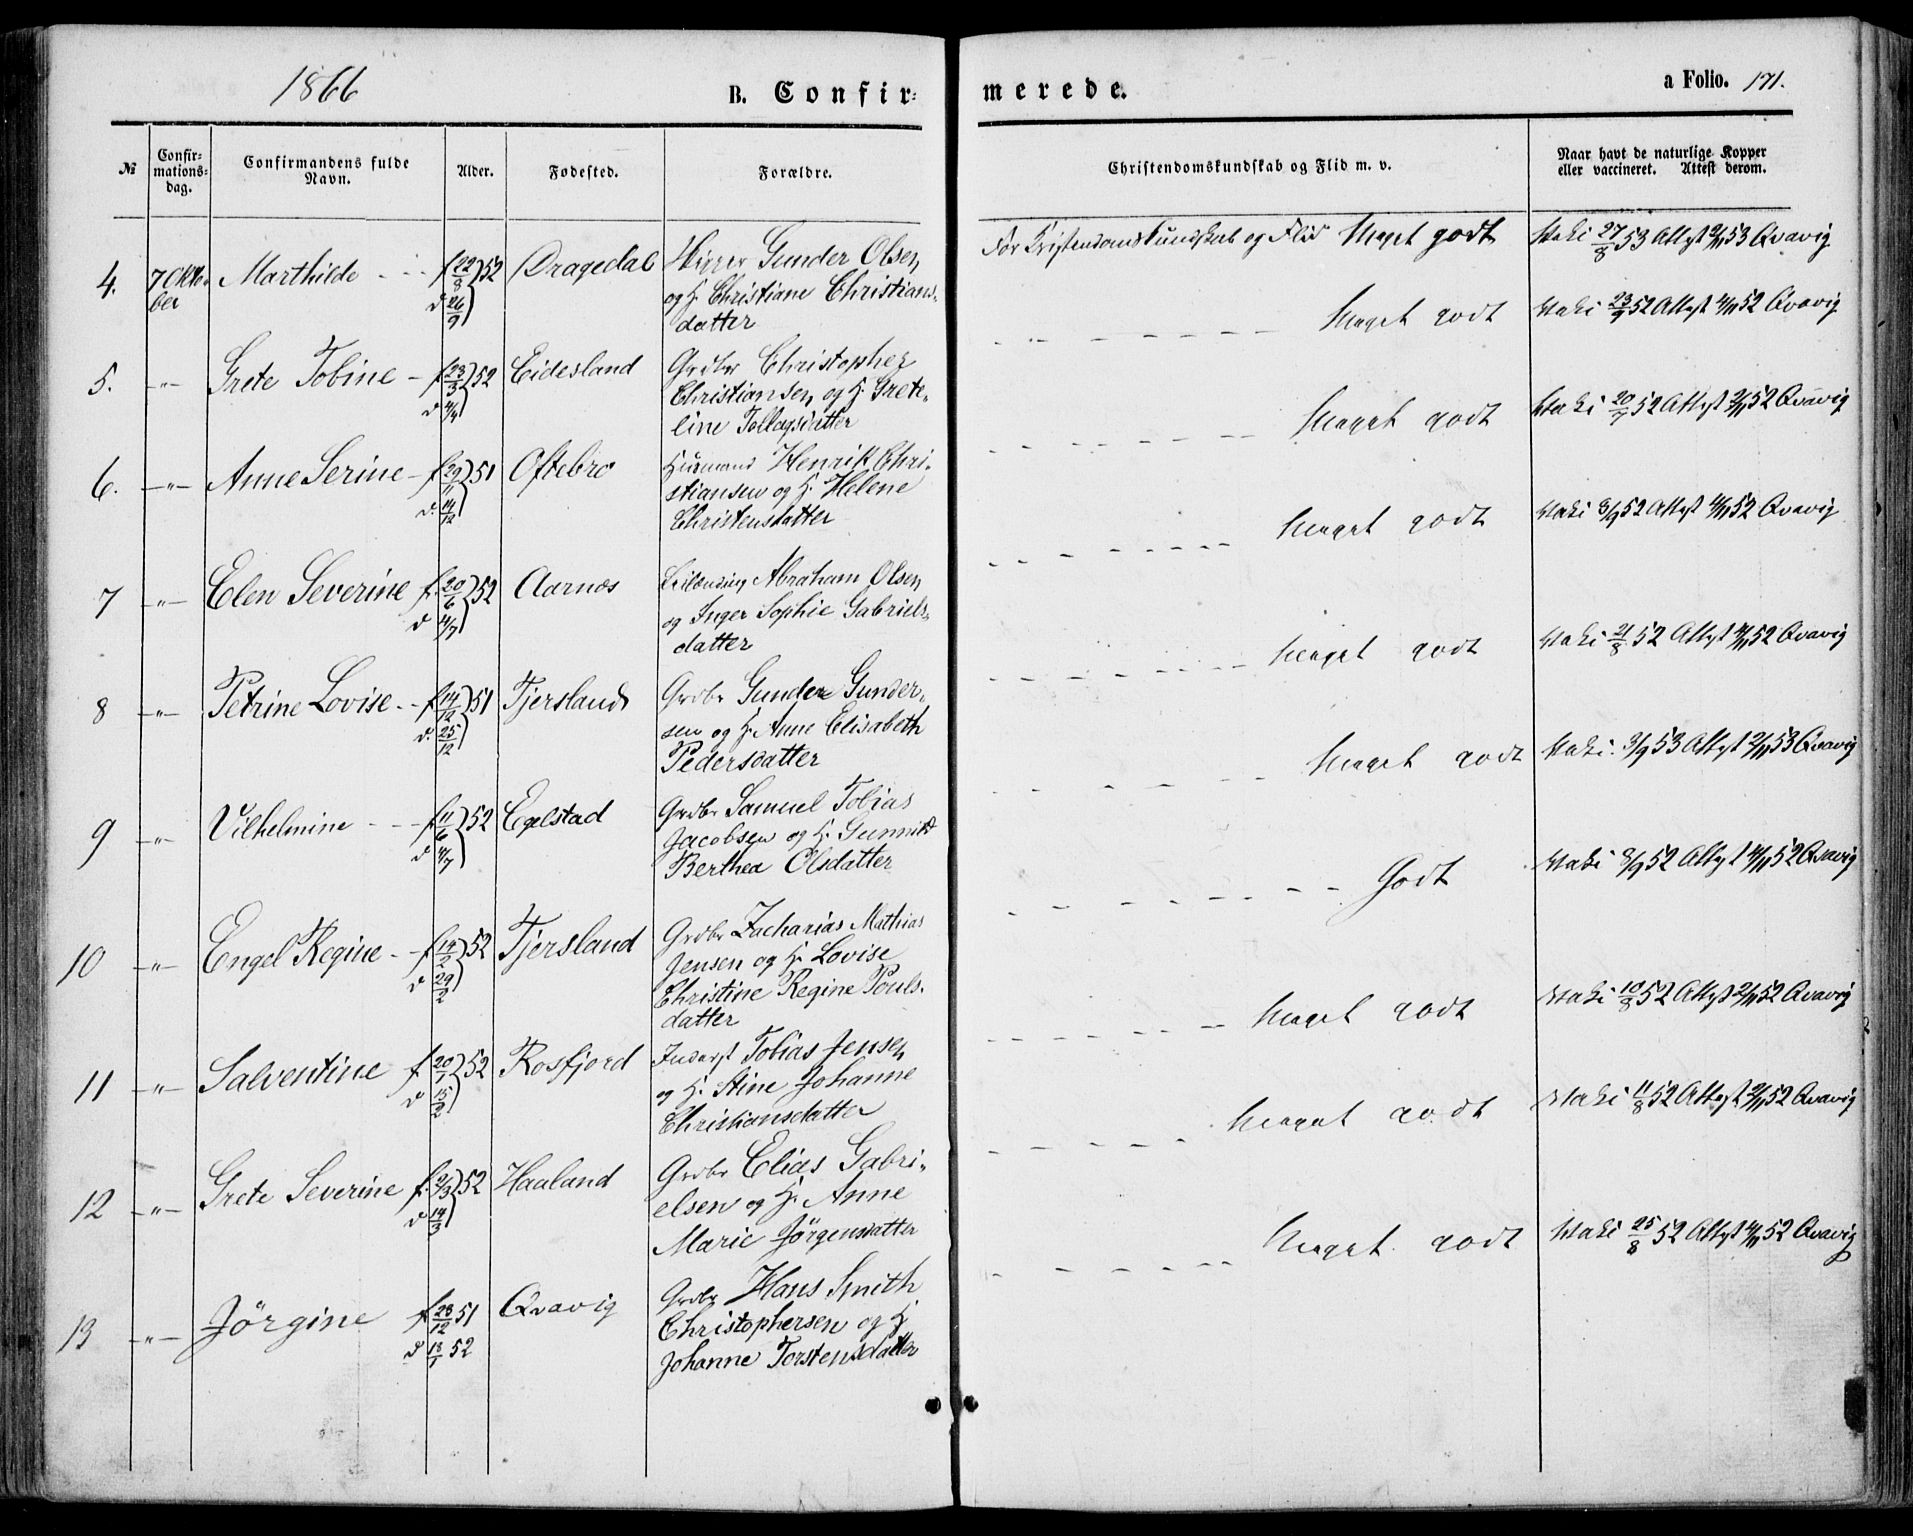 1866
B. Confir-
merede.
a Folio. 171.
№
Confir-
mations-
dag.
Confirmandens fulde
Navn.
Alder.
Fødested.
Forældre.
Christendomskundskab og Flid m. v.
Naar havt de naturlige Kopper
eller vaccineret. Attest derom.
4. 7 Okto- Marthilde - f 22/8 52 Dragedal Gunder Olsen
ber d 26/9 og H. Christiane Christians-
datter
For Kristendomskundskab og Flid Meget godt Vaki 27/8 53 Attest 2/11 53 Qvavig
5. -"- Grete Tobine - f 23/3 52 Eidesland Grdbr Christopher
d 4/4 Christiansen og H. Grete-
line Tollagsdatter
Meget godt Vaki 23/9 52 Attest 4/11 52 Qvavig
6. -"- Anne Serine - f 29/11 51 Oftebro Husmand Henrik Chri-
d. 14/12 stiansen og H. Helene
Christensdatter
Meget godt Vaki 20/7 52 Attest 2/11 52 Qvavig
7 -"- Elen Severine f. 20/6 52 Aarnæs Leilænding Abraham Olsen
d 4/7 og Inger Sophie Gabriels-
datter
Meget godt Vaki 8/9 52 Attest 4/11 52 Qvavig
8 -"- Petrine Lovise - f 14/12 51 Tjersland Grdbr Gunder Gunder-
d. 25/12 sen og H. Anne Elisabeth
Pedersdatter
Meget godt Vaki 21/8 52 Attest 4/11 52 Qvavig
9 -"- Vilhelmine - f 11/6 52 Egelstad Grdbr Samuel Tobias
d 4/7 Jacobsen og H. Gunnild
Berthea Olsdatter
Meget godt Vaki 3/9 53 Attest 2/11 53 Qvavig
10 -"- Engel Regine - f 14/2 52 Tjersland Grdbr Zacharias Mathias
d 29/2 Jensen og H. Lovise
Christine Regine Pouls-
datter
Godt Vaki 8/9 52 Attest 4/11 52 Qvavig
11 -"- Salventine f. 20/1 52 Rosfjord Inderst Tobias Jensen
d 15/2 og H. Stine Johanne
Christiansdatter
Meget godt Vaki 10/8 52 Attest 2/11 52 Qvavig
12 -"- Grete Severine f. 2/3 52 Haaland Grdbr Elias Gabri-
d 14/3 elsen og H. Anne
Marie Jørgensdatter
Meget godt Vaki 11/8 52 Attest 2/11 52 Qvavig
13 -"- Jørgine f 28/12 51 Qvavig Grdbr Hans Smith
d 18/1 52 Christophersen og H.
Johanne Torstensdatter
Meget godt Vaki 25/8 52 Attest 4/11 52 Qvavig